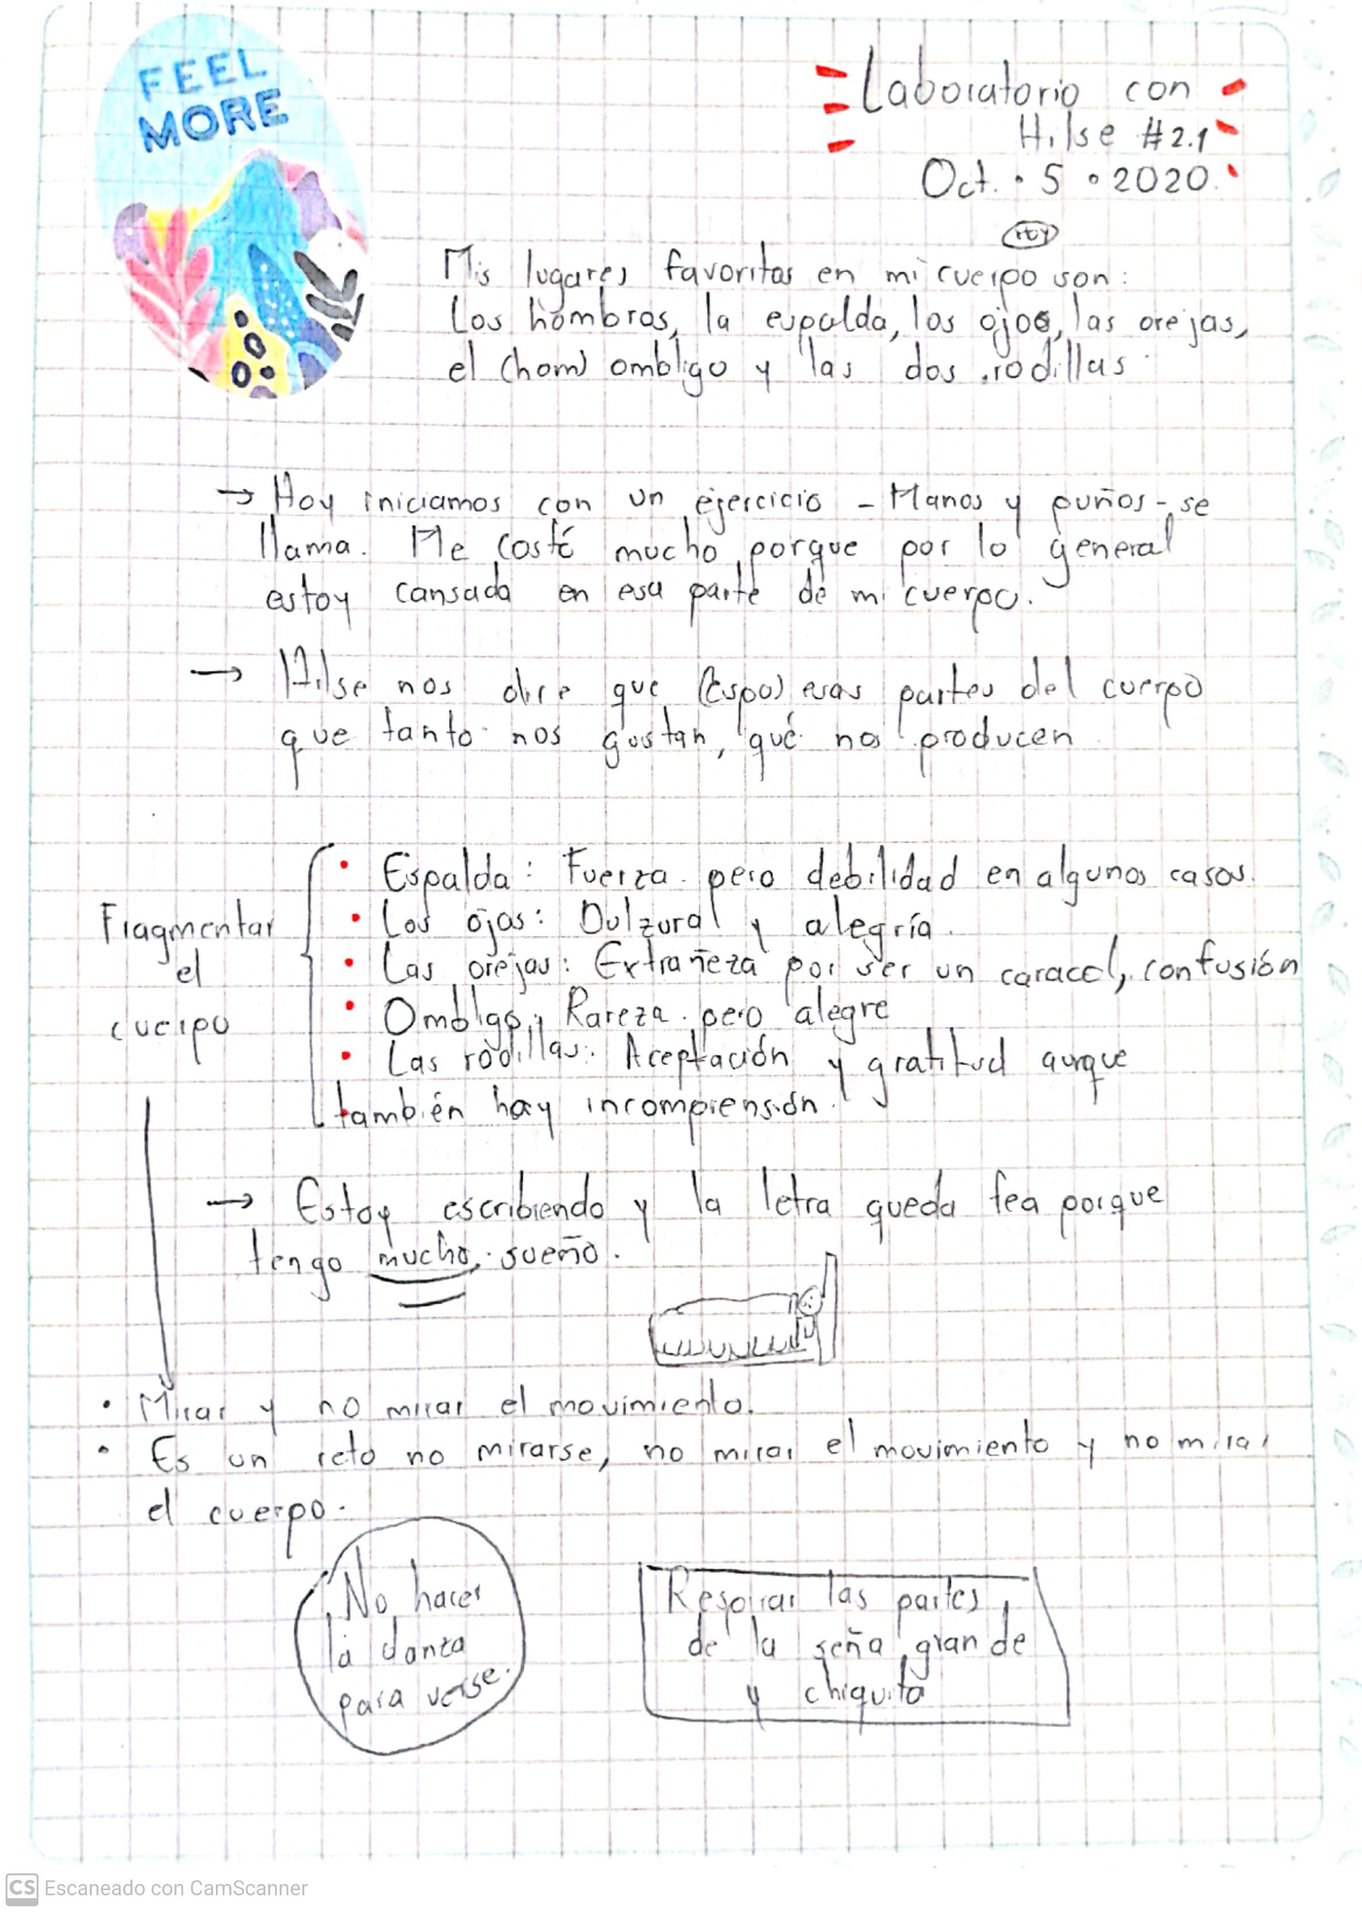 FEEL
MORE
Laboratorio con
Hilse #2.1
Oct. • 5 • 2020.
Mis lugares favoritos en mi cuerpo son:
Los hombros, la espalda, los ojos, las orejas,
el (hom) ombligo y las dos rodillas.
→ Hoy iniciamos con un ejercicio - Manos y puños - se
llama. Me costó mucho porque por lo general
estoy cansada en esa parte de mi cuerpo.
→ Hilse nos dice que (Espa) esas partes del cuerpo
que tanto nos gustan, qué nos producen
Fragmentar
el
cuerpo
• Espalda: Fuerza pero debilidad en algunos casos.
• Los ojos: Dulzura y alegría.
• Las orejas: Extrañeza por ser un caracol, confusión
• Ombligo: Rareza pero alegre
• Las rodillas: Aceptación y gratitud aunque
también hay incomprensión.
→ Estoy escribiendo y la letra queda fea porque
tengo mucho sueño.
• Mirar y no mirar el movimiento.
• Es un reto no mirarse, no mirar el movimiento y no mirar
el cuerpo.
No hacer
la danza
para verse.
las partes
de la seña grande
y chiquita
CS Escaneado con CamScanner